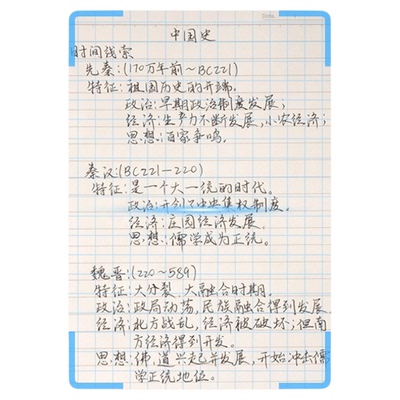 中国史
时间线索
先秦:(170万年前~BC221)
特征:祖国历史的开端。
政治:早期政治制度发展;
经济:生产力不断发展,小农经济;
思想:百家争鸣。
秦汉:(BC221—220)
特征:是一个大一统的时代。
政治:开创了中央集权制度。
经济:庄园经济发展。
思想:儒学成为正统。
魏晋:(220~589)
特征:大分裂、大融合时期。
政治:政局动荡,民族融合得到发展.
经济:北方战乱,经济被破坏;但南
方经济得到开发。
思想:佛、道兴起并发展,开始冲击儒
学正统地位。